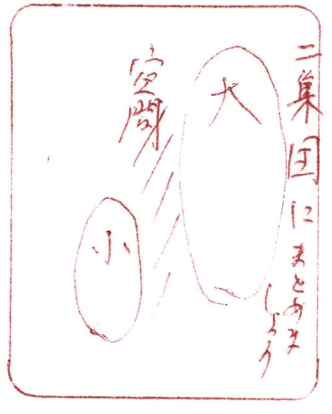 二集団にまとめま
しょう
大
空間
小